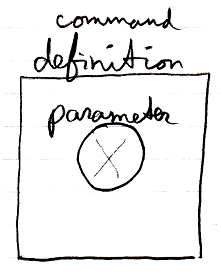 command
definition
parameter
X